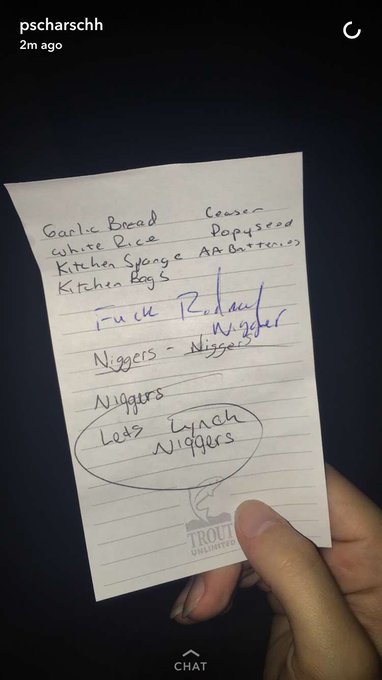 pscharschh
2m ago
Garlic Bread Ceaser
White Rice Popyseed
Kitchen Sponge AA Batteries
Kitchen Bags
Fuck
Nigger
Niggers - Niggers
Niggers
Lets Lynch
Niggers
TROUT
UNLIMITED
CHAT